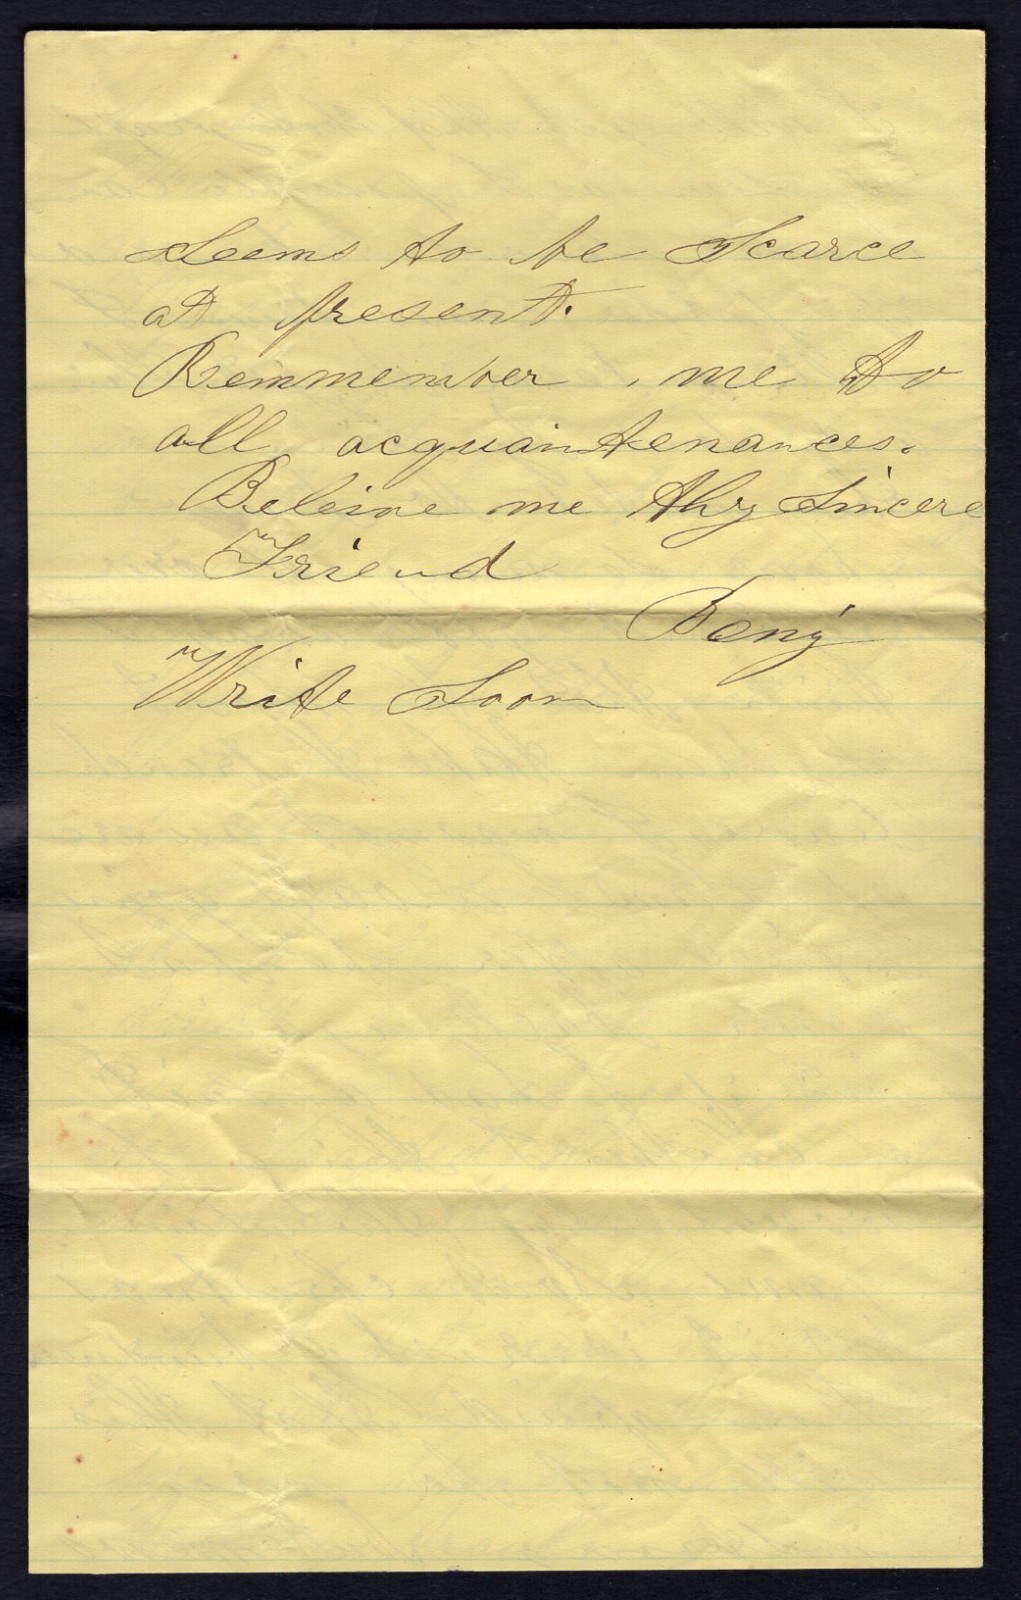 Seems to be Scarce
at present.
Remmember me to
all acquaintenances.
Beleive me thy Sincere
Friend
Benj
Write Soon